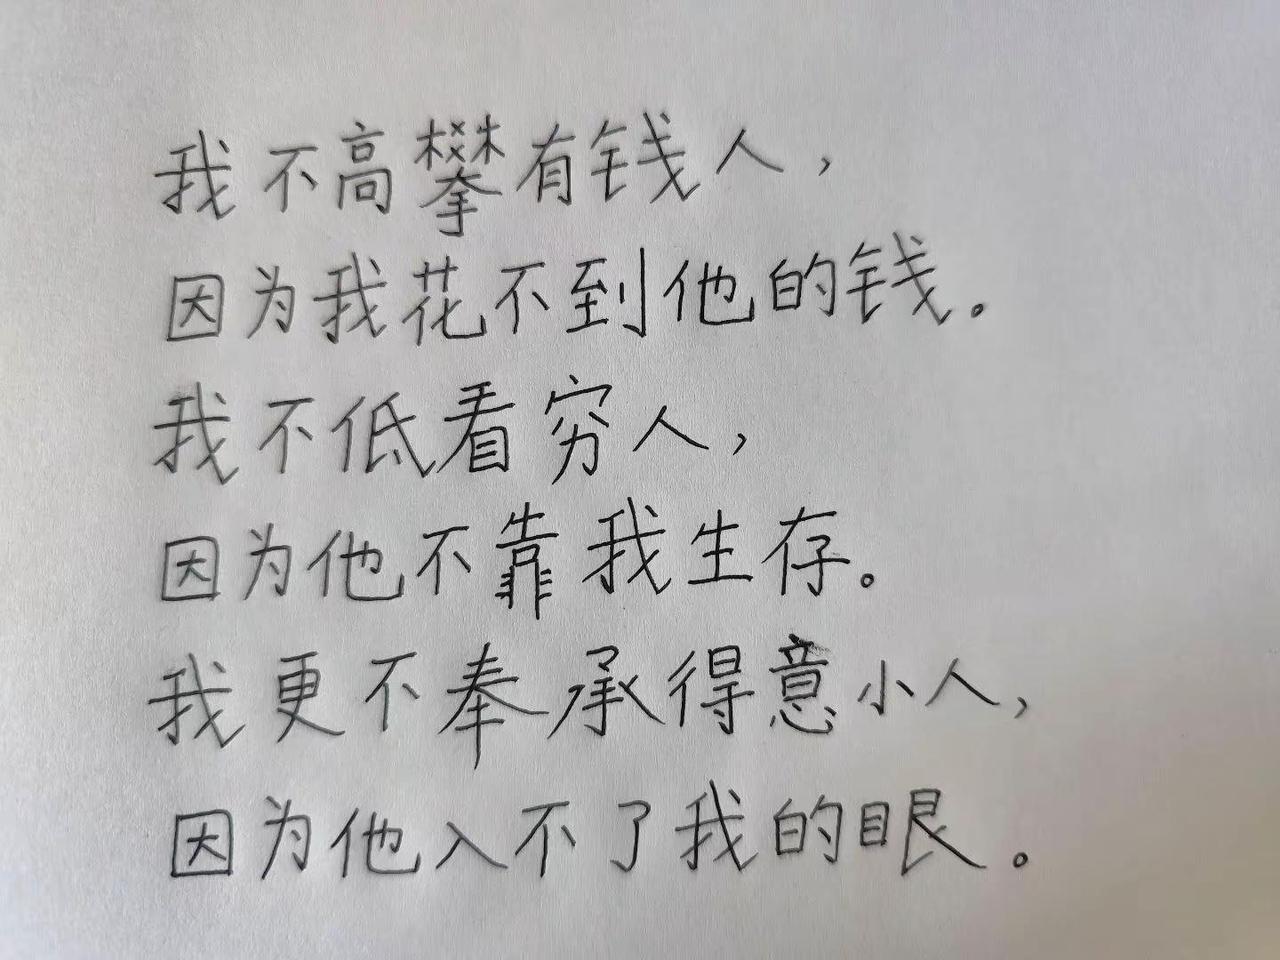 我不高攀有钱人，
因为我花不到他的钱。
我不低看穷人，
因为他不靠我生存。
我更不奉承得意小人，
因为他入不了我的眼。